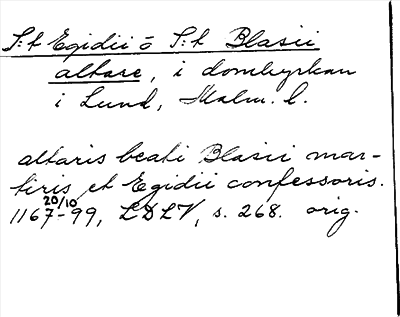 S:t Egidii o S:t Blasii
altare, i domkyrkan
i Lund, Malm. l.
altaris beati Blasii mar-
tiris et Egidii confessoris.
20/10
1167-99, LDLV, s. 268. orig.